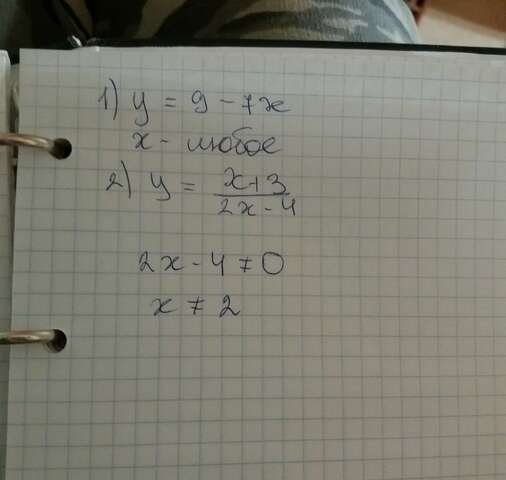 1) y = 9 - 7x
x - любое
2) y = x+3 / 2x - 4
2x - 4 ≠ 0
x ≠ 2